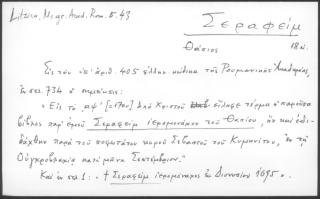 Litzica, Ms. gr. Acad. Rom. 5.43
Σεραφείμ
Θάσιος 18 αι.
Εἰς τὸν ὑπ' ἀριθ. 405 ἑλλην. κώδικα τῆς Ρουμανικῆς Ἀκαδημίας,
ἐν σελ. 734 ὁ σημείωσις:
« Εἰς τὸ αψ' [=1700] ἀπὸ Χριστοῦ εἴληφε τέρμα ἡ παροῦσα
βίβλος παρ' ἐμοῦ Σεραφεὶμ ἱερομονάχου τοῦ Θασίου, ἣν καὶ ἐδι-
δάχθην παρὰ τοῦ σοφωτάτου κυροῦ Σεβαστοῦ τοῦ Κυμινήτου, ἐν τῇ
Οὐγκροβλαχίᾳ κατὰ μῆνα Σεπτέμβριον."
Καὶ ἐν σελ. 1: « † Σεραφεὶμ ἱερομόναχος ἐκ Διονυσίου 1695 ».